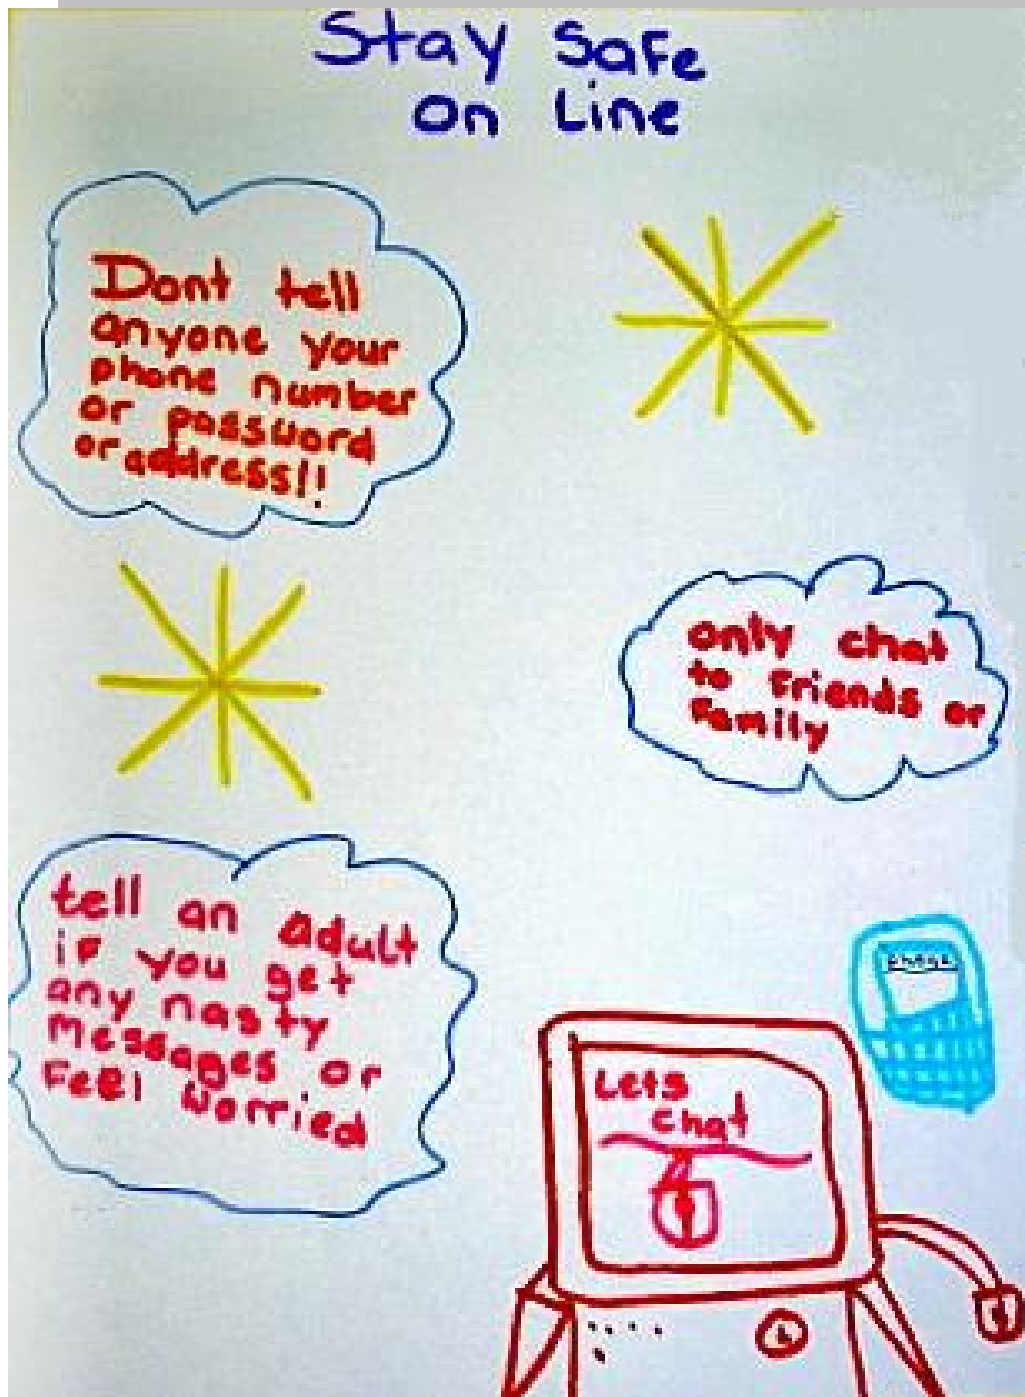 Stay Safe
On Line
Dont tell
anyone your
phone number
or password
or address!!
only chat
to Friends or
Family
tell an adult
iF you get
any nasty
messages or
Feel worried
phone
Lets
chat